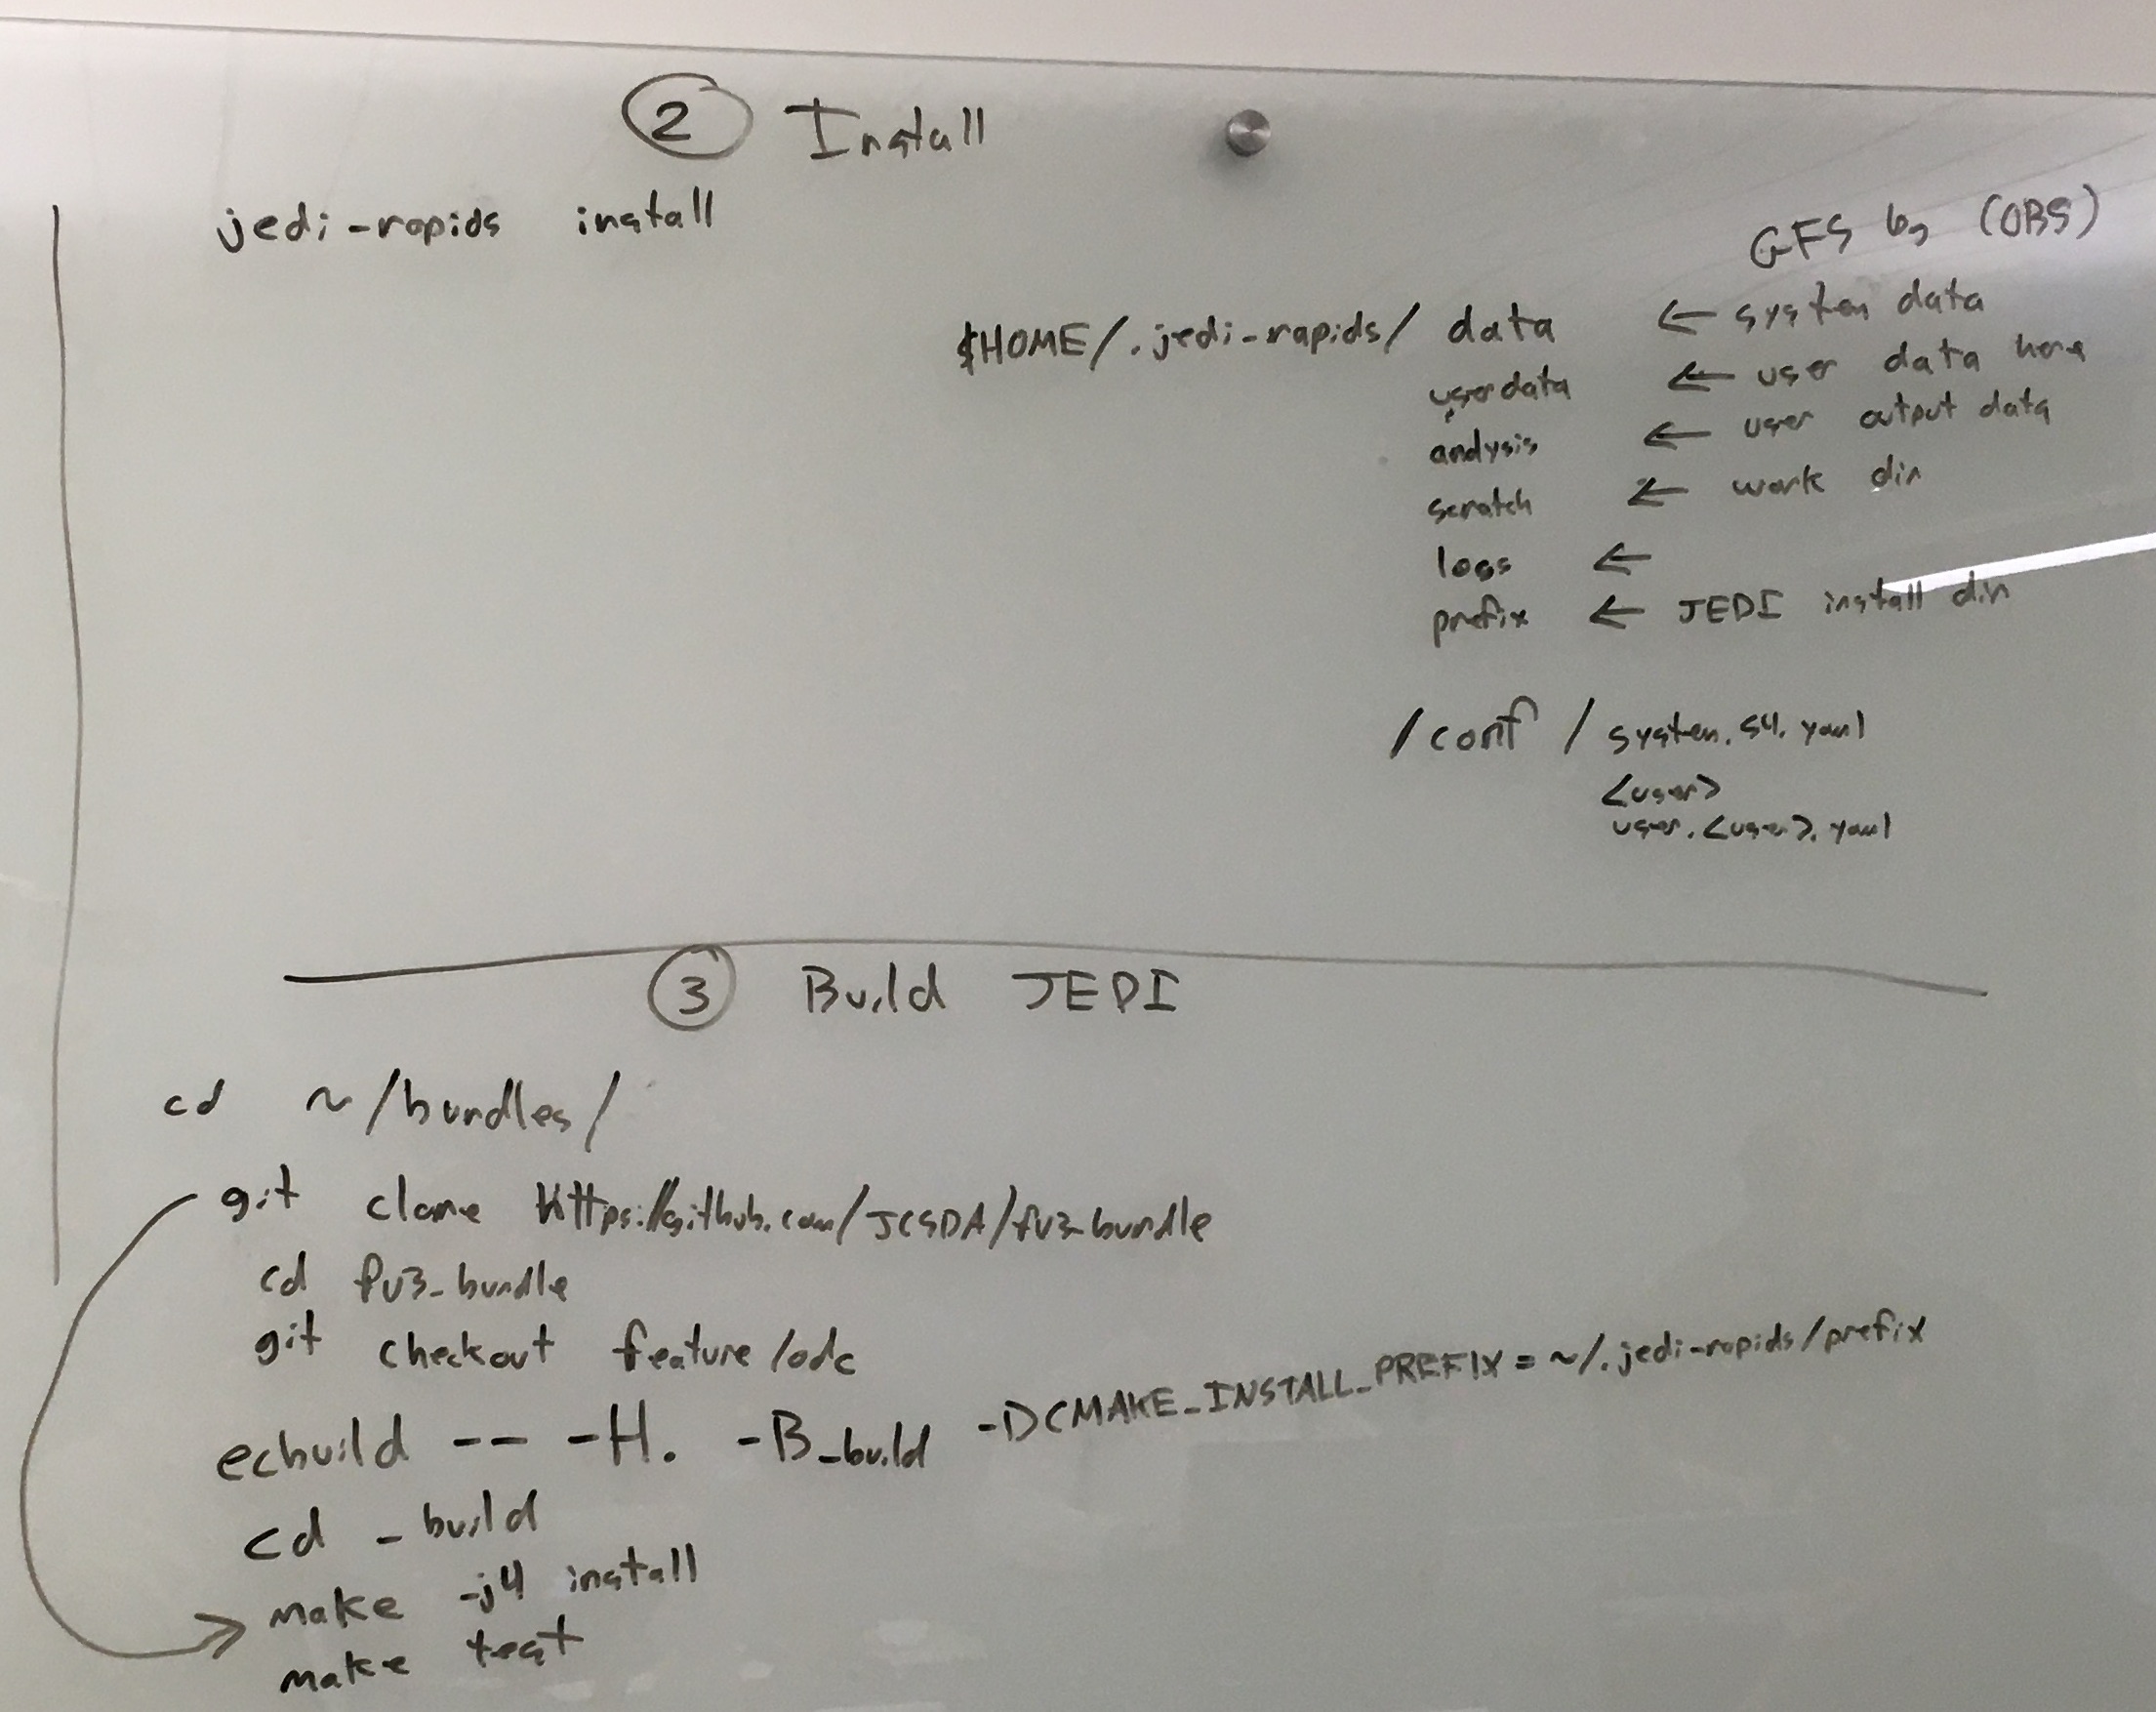 ② Install
jedi-rapids install
GFS bg (OBS)
$HOME/.jedi-rapids/ data ← system data
userdata ← user data here
analysis ← user output data
scratch ← work dir
logs ←
prefix ← JEDI install dir
/conf / system.S4.yaml
<user>
user.<user>.yaml
③ Build JEDI
cd ~/bundles/
git clone https://github.com/JCSDA/fv3-bundle
cd fv3-bundle
git checkout feature/odc
ecbuild -- -H. -B_build -DCMAKE_INSTALL_PREFIX=~/.jedi-rapids/prefix
cd _build
make -j4 install
make test